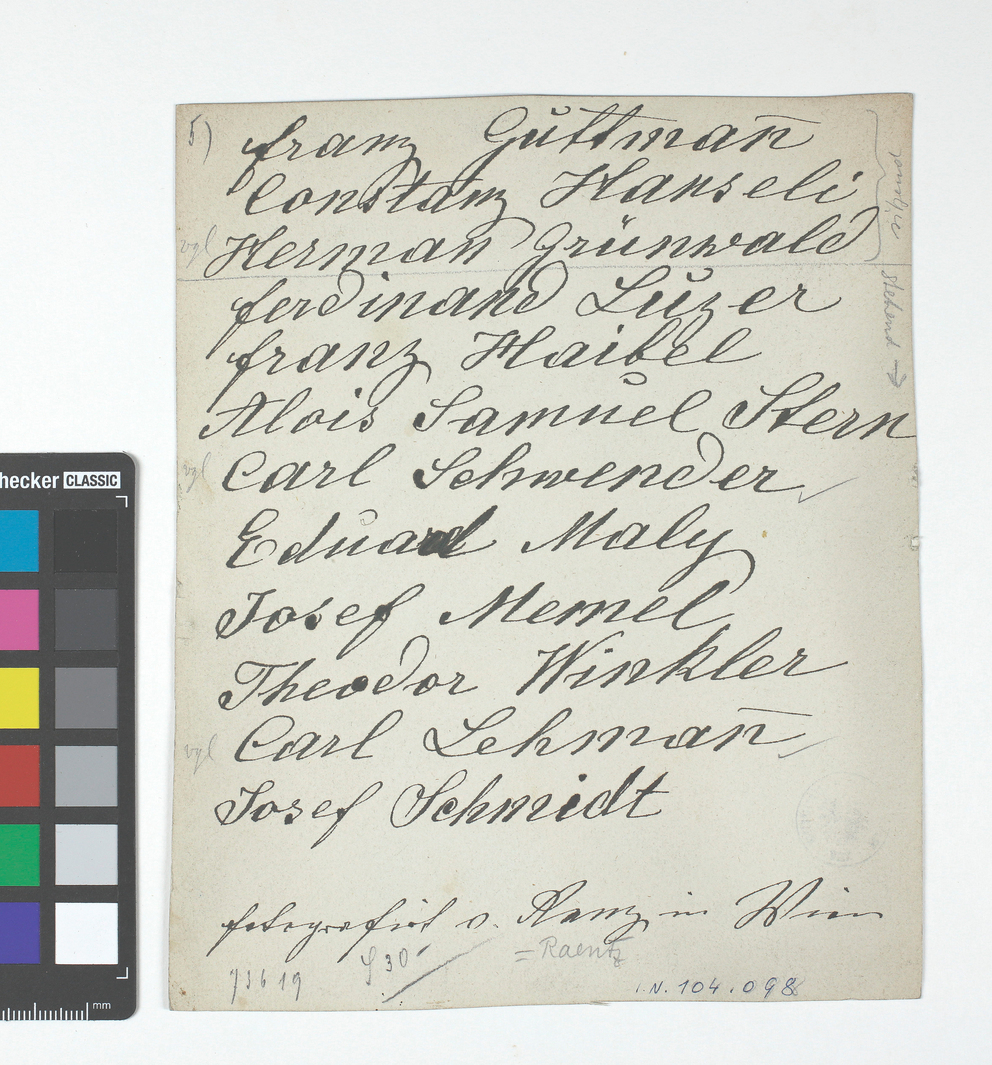 5) Franz Guttmañ
Constanz Hanseli
vgl Herman Grünwald
ferdinand Luzer
franz Haibel
Alois Samuel Stern
vgl Carl Schwender
Eduard Maly
Josef Memel
Theodor Winkler
vgl Carl Lehmañ
Josef Schmidt
stehend →
fotografirt v. Ranz in Wien
= Raentz
73619
S 30
I.N. 104.098
hecker CLASSIC
mm